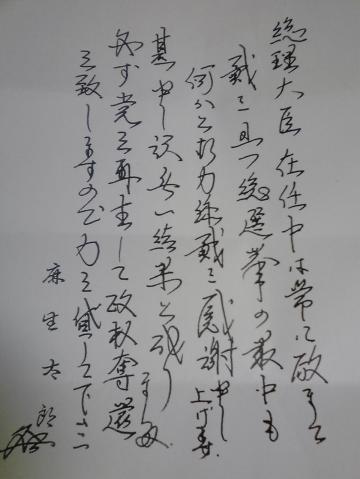 総理大臣在任中は常に
戴き且つ総選挙の最中も
何かと御力添戴き感謝申し上げます。
甚だ申し訳無い結果と成りました
必ず党を再生して政権奪還
を致しますので力を貸して下さい
麻生太郎